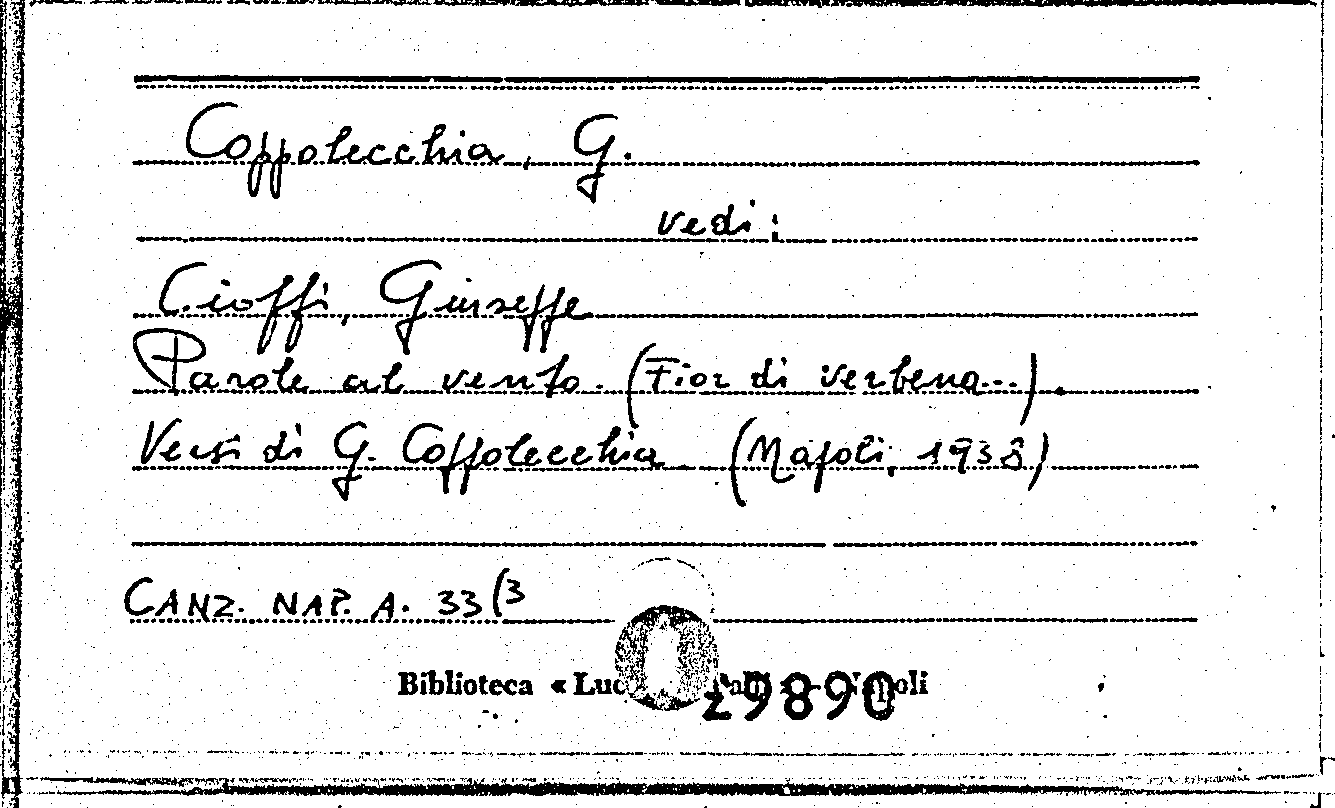 Coppolecchia, G.
vedi:
Cioffi, Giuseppe
Parole al vento. (Fior di verbena...).
Versi di G. Coppolecchia (Napoli, 1938)
CANZ. NAP. A. 33(3
Biblioteca «
29890